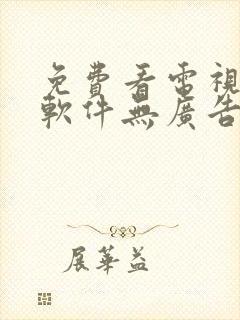 免費看電視
軟件無廣告
展華益